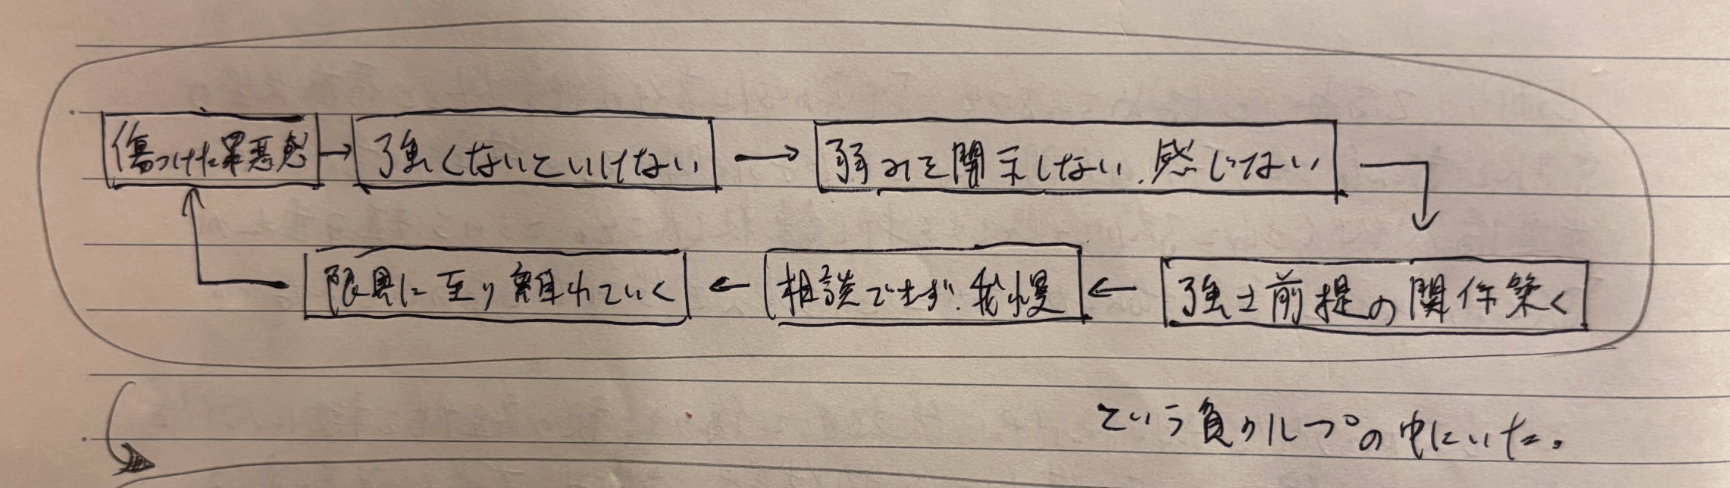 傷つけた罪悪感 → 強くないといけない → 弱みを開示しない、感じない
限界に至り離れていく ← 相談できず、我慢 ← 強さ前提の関係築く
という負のループの中にいた。